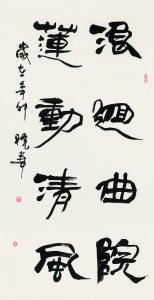 浪迴曲院
蓮動清風
歲在辛卯 曉壽